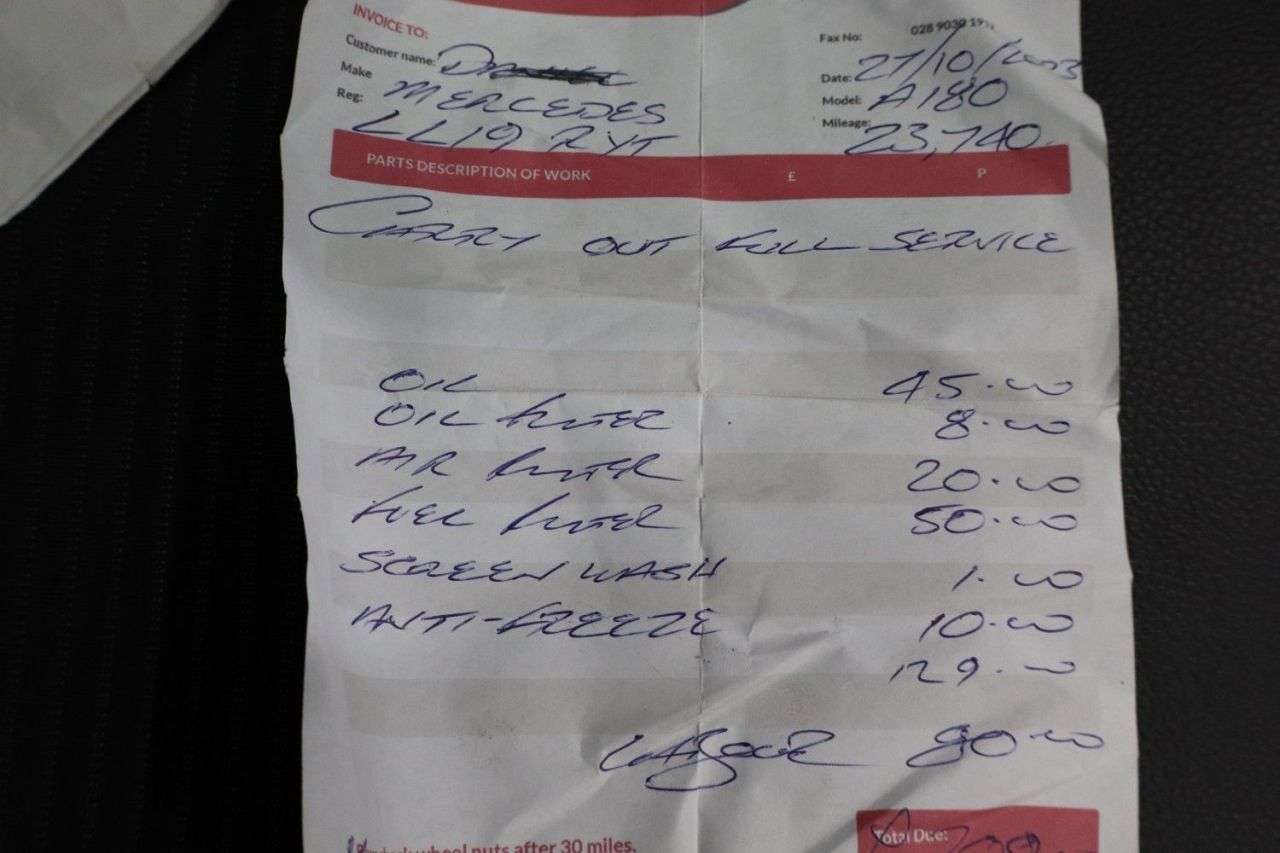 INVOICE TO:
Fax No: 028 9030 19
Customer name:
Date: 27/10/2023
Make MERCEDES
Model: A180
Reg: LL19 RYT
Mileage: 23,740
PARTS DESCRIPTION OF WORK £ P
CARRY OUT FULL SERVICE
OIL 45.00
OIL FILTER 8.00
AIR FILTER 20.00
FUEL FILTER 50.00
SCREEN WASH 1.00
ANTI-FREEZE 10.00
129.00
LABOUR 80.00
Total Due:
wheel nuts after 30 miles.